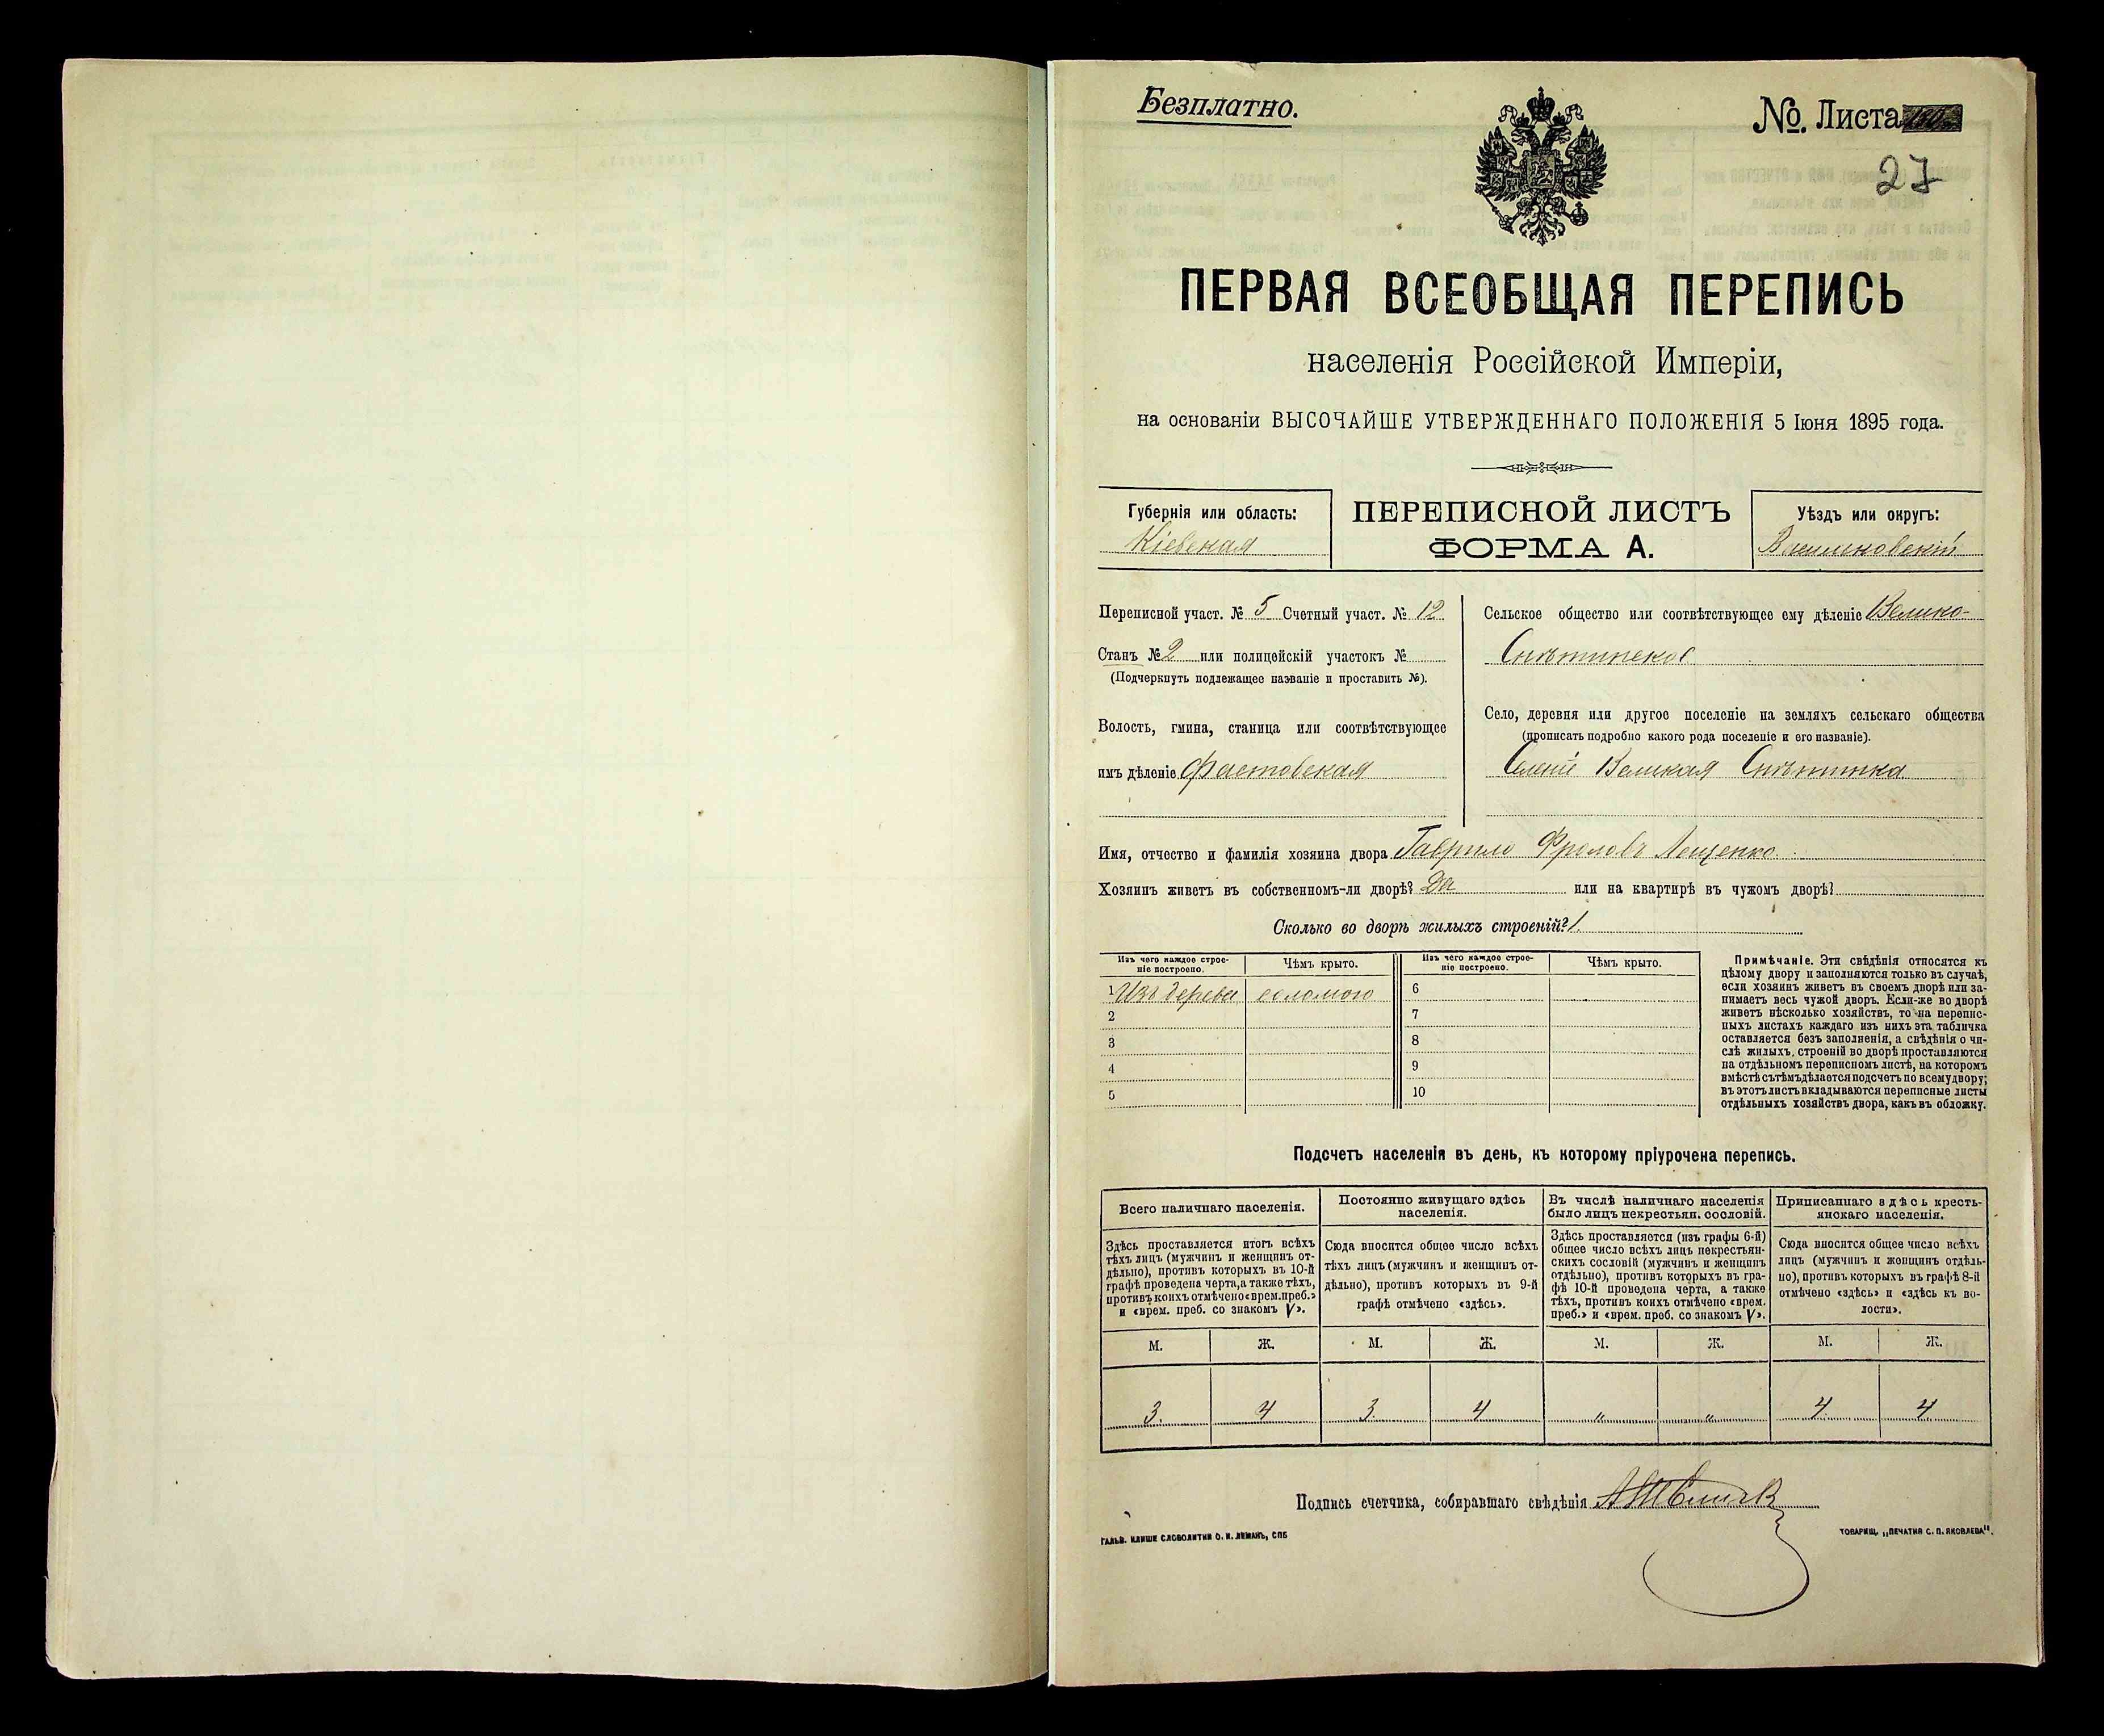 Безплатно.
№. Листа
27
ПЕРВАЯ ВСЕОБЩАЯ ПЕРЕПИСЬ
населенія Россійской Имперіи,
на основаніи ВЫСОЧАЙШЕ УТВЕРЖДЕННАГО ПОЛОЖЕНІЯ 5 Іюня 1895 года.
Губернія или область:
Кіевская
ПЕРЕПИСНОЙ ЛИСТЪ
ФОРМА А.
Уѣздъ или округъ:
Васильковскій
Переписной участ. № 5 Счетный участ. № 12
Станъ № 2 или полицейскій участокъ №
(Подчеркнуть подлежащее названіе и проставить №).
Волость, гмина, станица или соотвѣтствующее
имъ дѣленіе Фастовская
Сельское общество или соотвѣтствующее ему дѣленіе Велико-
Снѣтинское
Село, деревня или другое поселеніе на земляхъ сельскаго общества
(прописать подробно какого рода поселеніе и его названіе).
Великая Снѣтинка
Имя, отчество и фамилія хозяина двора Гаврило Фроловъ Лещенко
Хозяинъ живетъ въ собственномъ-ли дворѣ? Да или на квартирѣ въ чужомъ дворѣ?
Сколько во дворѣ жилыхъ строеній? 1
Изъ чего каждое строе-
ніе построено.
Чѣмъ крыто.
Изъ чего каждое строе-
ніе построено.
Чѣмъ крыто.
1 Изъ дерева соломою 6
2 7
3 8
4 9
5 10
Примѣчаніе. Эти свѣдѣнія относятся къ
цѣлому двору и заполняются только въ случаѣ,
если хозяинъ живетъ въ своемъ дворѣ или за-
нимаетъ весь чужой дворъ. Если-же во дворѣ
живетъ нѣсколько хозяйствъ, то на перепис-
ныхъ листахъ каждаго изъ нихъ эта табличка
оставляется безъ заполненія, а свѣдѣнія о чи-
слѣ жилыхъ строеній во дворѣ проставляются
на отдѣльномъ переписномъ листѣ, на которомъ
вмѣстѣ съ тѣмъ дѣлается подсчетъ по всему двору;
въ этотъ листъ вкладываются переписные листы
отдѣльныхъ хозяйствъ двора, какъ въ обложку.
Подсчетъ населенія въ день, къ которому пріурочена перепись.
Всего наличнаго населенія.
Здѣсь проставляется итогъ всѣхъ
тѣхъ лицъ (мужчинъ и женщинъ от-
дѣльно), противъ которыхъ въ 10-й
графѣ проведена черта, а также тѣхъ,
противъ коихъ отмѣчено «врем. преб.»
и «врем. преб. со знакомъ V».
Постоянно живущаго здѣсь
населенія.
Сюда вносится общее число всѣхъ
тѣхъ лицъ (мужчинъ и женщинъ от-
дѣльно), противъ которыхъ въ 9-й
графѣ отмѣчено «здѣсь».
Въ числѣ наличнаго населенія
было лицъ некрестьян. сословій.
Здѣсь проставляется (изъ графы 6-й)
общее число всѣхъ лицъ некрестьян-
скихъ сословій (мужчинъ и женщинъ
отдѣльно), противъ которыхъ въ гра-
фѣ 10-й проведена черта, а также
тѣхъ, противъ коихъ отмѣчено «врем.
преб.» и «врем. преб. со знакомъ V».
Приписаннаго здѣсь кресть-
янскаго населенія.
Сюда вносится общее число всѣхъ
лицъ (мужчинъ и женщинъ отдѣль-
но), противъ которыхъ въ графѣ 8-й
отмѣчено «здѣсь» и «здѣсь къ во-
лости».
М. Ж. М. Ж. М. Ж. М. Ж.
3. 4 3 4 " " 4 4
Подпись счетчика, собиравшаго свѣдѣнія
ГАЛЬВ. КЛИШЕ СЛОВОЛИТНИ О. И. ЛЕМАНЪ, СПБ
ТОВАРИЩ. „ПЕЧАТНЯ С. П. ЯКОВЛЕВА".